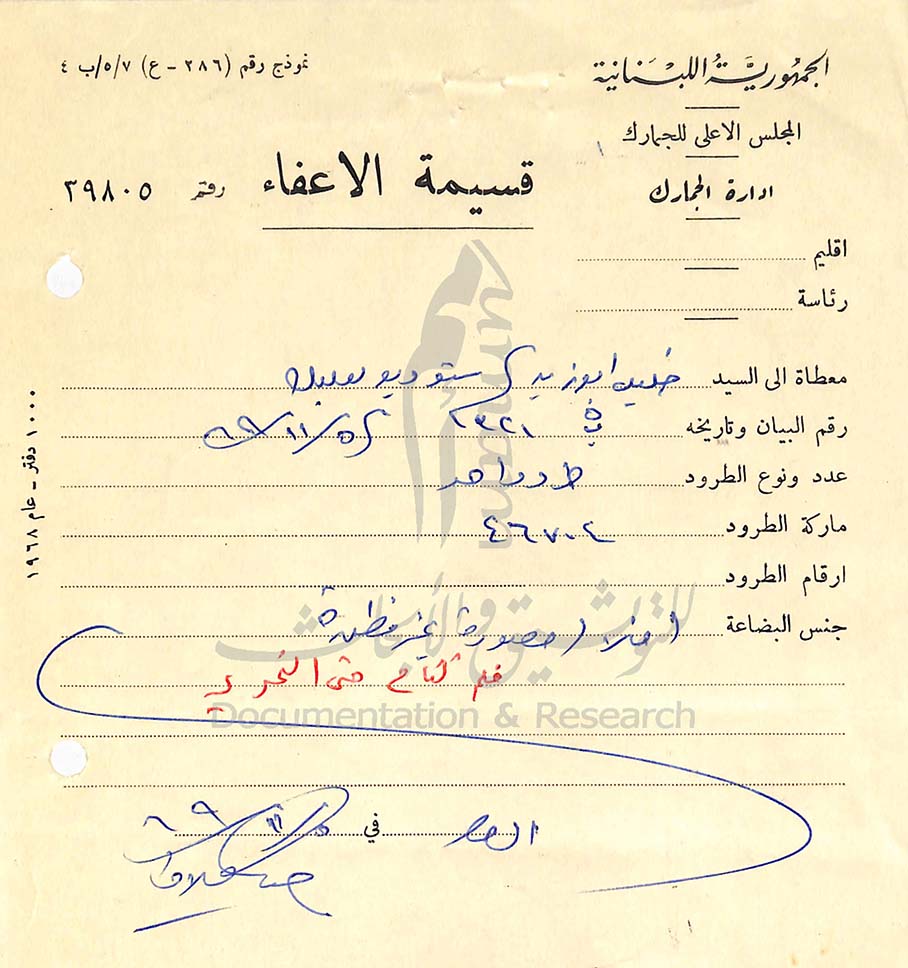 الجمهورية اللبنانية
نموذج رقم (٢٨٦ - ع) ٥/٧/ب ٤
المجلس الاعلى للجمارك
ادارة الجمارك
قسيمة الاعفاء رقم ٢٩٨٠٥
اقليم
رئاسة
معطاة الى السيد خليل ابو زيد ستوديو بعلبك
رقم البيان وتاريخه ٢٣٢١
عدد ونوع الطرود طرد واحد
ماركة الطرود ٤٦٧٠٤
ارقام الطرود
جنس البضاعة افلام مصورة غير مظهرة
فلم كفاح حتى التحرير
في ٦٩/١١/٥
١٠٠٠ دفتر - عام ١٩٦٨
umam
للتوثيق والأبحاث
Documentation & Research